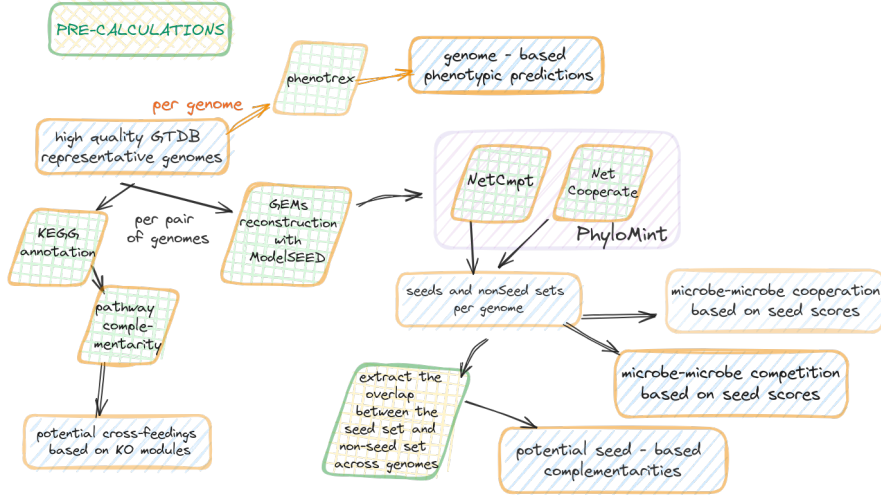 PRE-CALCULATIONS
phenotrex
genome - based
phenotypic predictions
per genome
high quality GTDB
representative genomes
NetCmpt
Net
Cooperate
PhyloMint
KEGG
annotation
per pair
of genomes
GEMs
reconstruction
with
ModelSEED
pathway
comple-
mentarity
seeds and nonSeed sets
per genome
microbe-microbe cooperation
based on seed scores
microbe-microbe competition
based on seed scores
extract the
overlap
between the
seed set and
non-seed set
across genomes
potential cross-feedings
based on KO modules
potential seed - based
complementarities